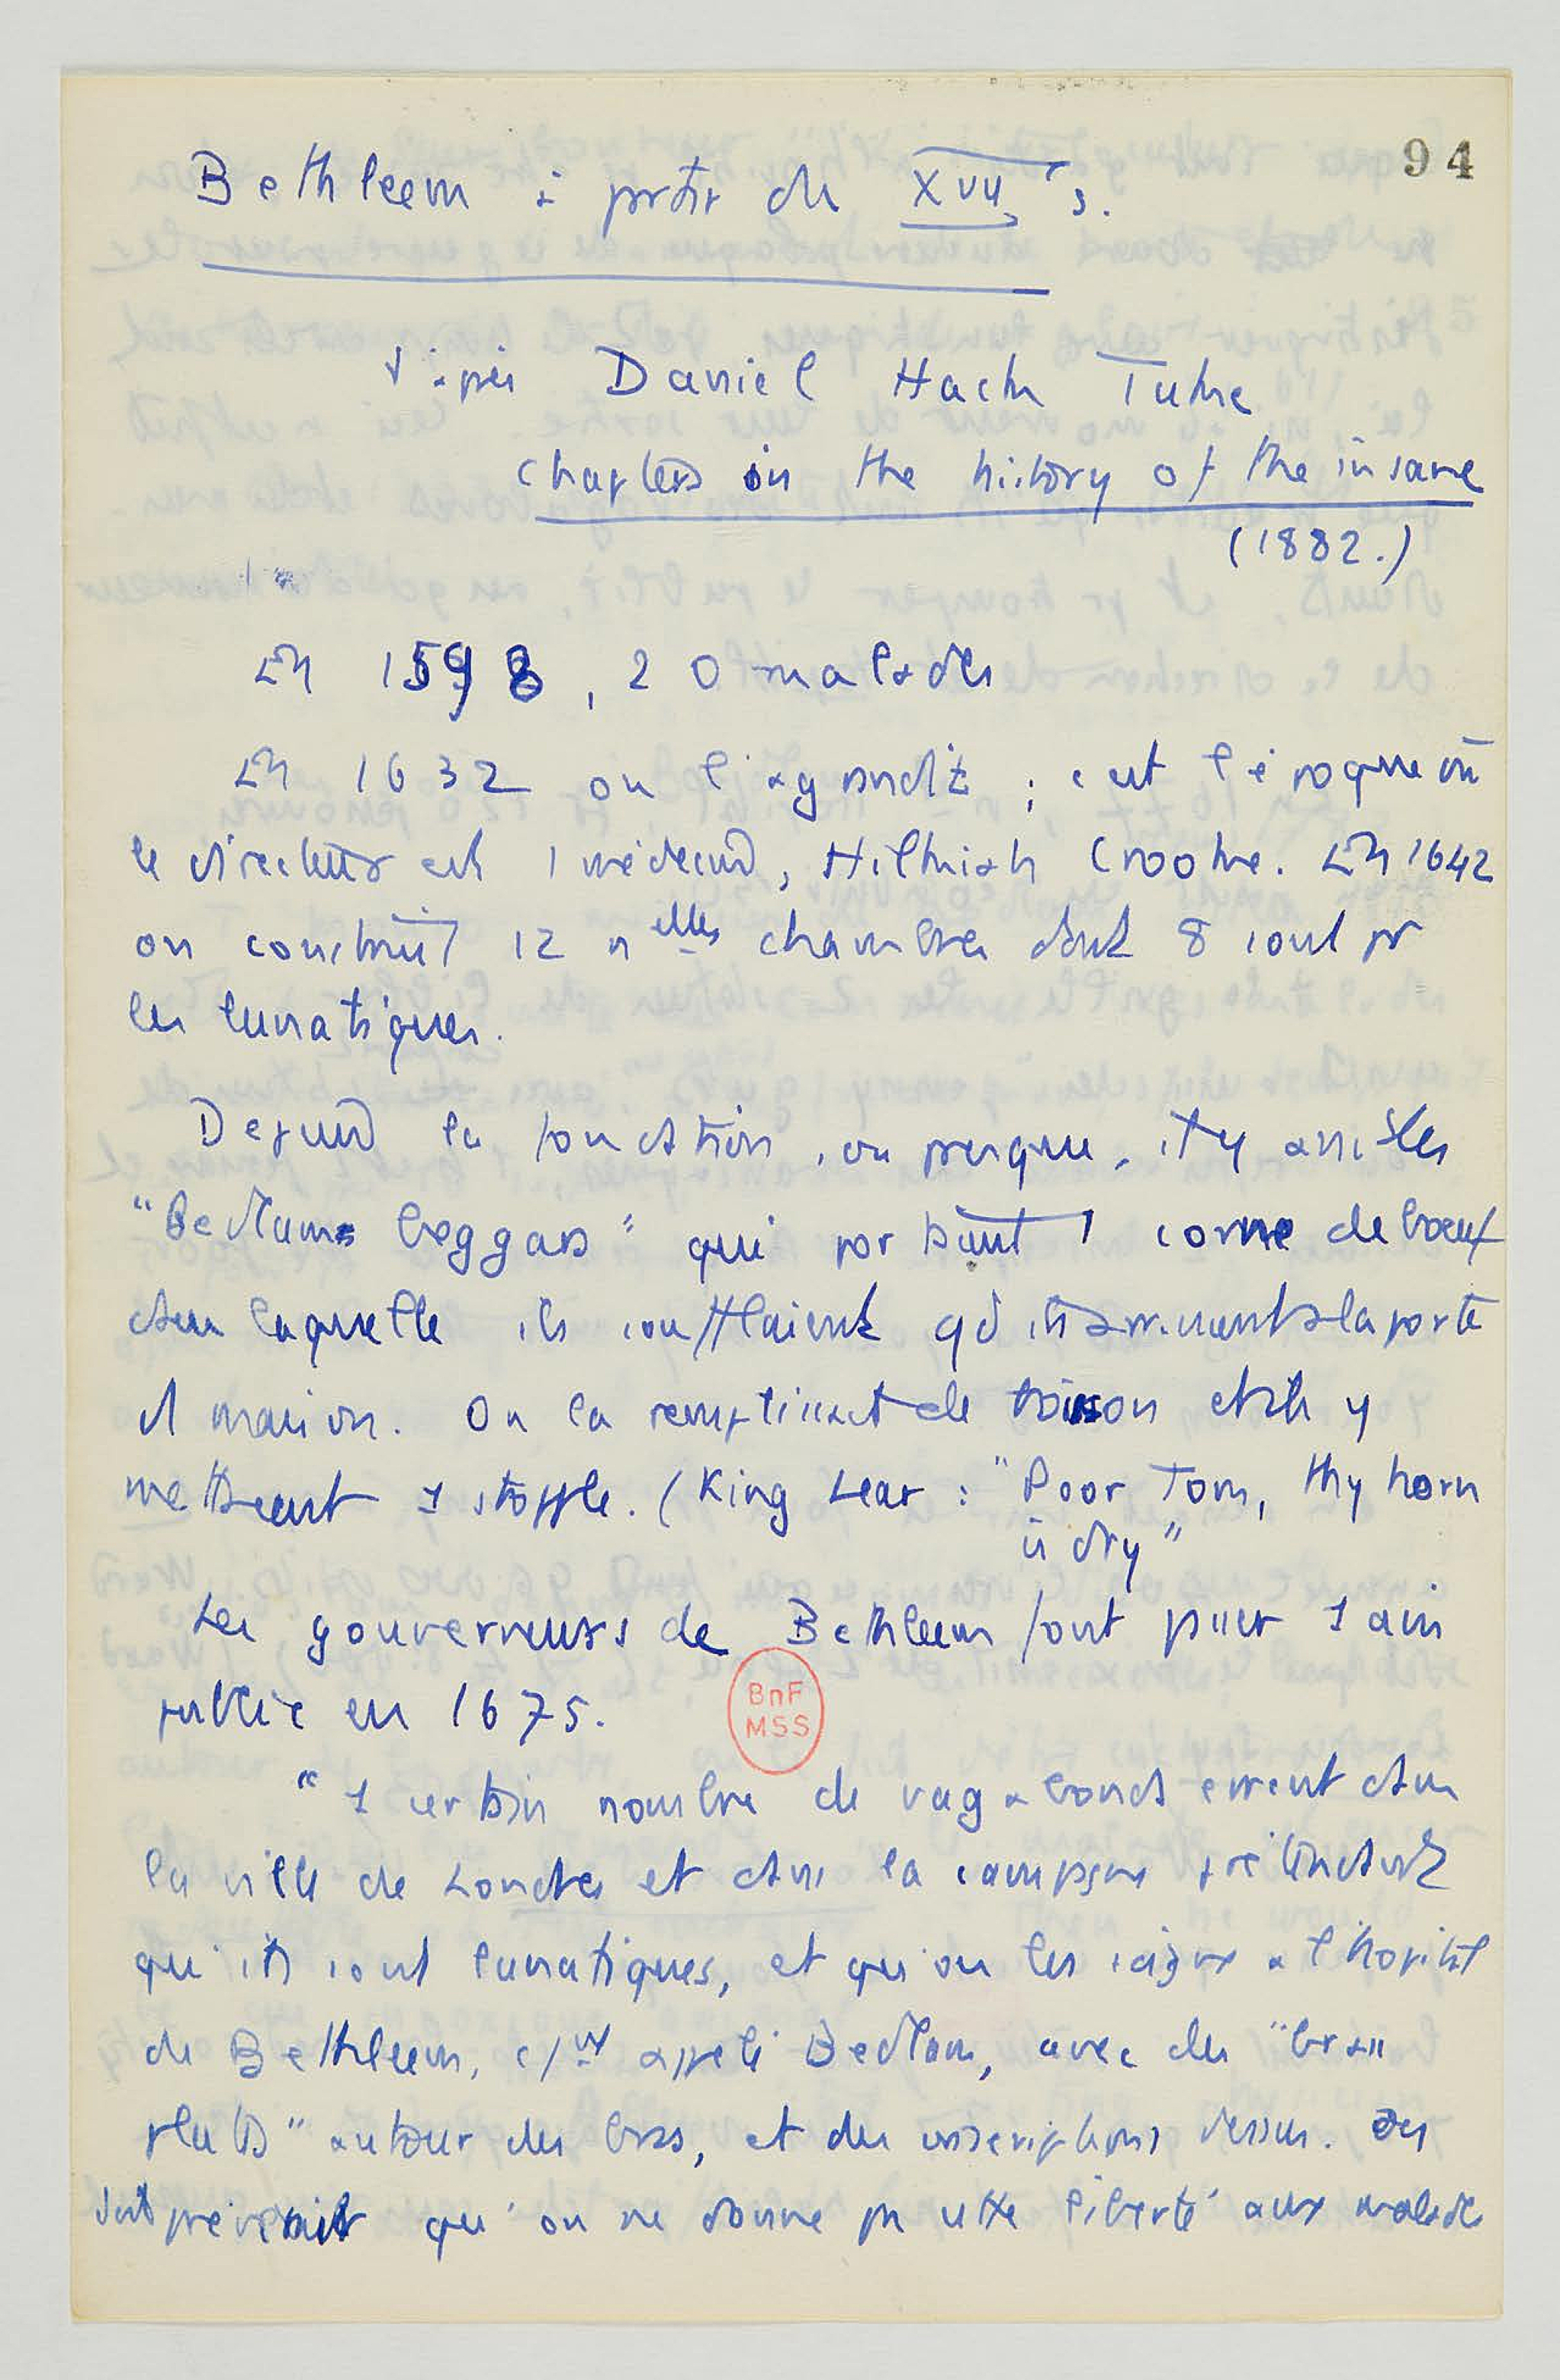 94
Bethleem à partir du XVIIe s.
d'après Daniel Hack Tuke
Chapters in the history of the insane
(1882.)
En 1598, 20 malades
En 1632 on l'agrandit ; c'est l'époque où
le directeur est 1 médecin, Hilkiah Crooke. En 1642
on construit 12 nelles chambres dont 8 sont pr
les lunatiques.
Depuis la fondation, ou presque, il y a
"Bedlams beggars" qui portaient 1 corne de bœuf
dans laquelle ils soufflaient qd ils arrivaient à la porte
d maison. On la remplissait de boisson et ils y
mettaient 1 stopple. (King Lear : "Poor Tom, thy horn
is dry"
Les gouverneurs de Bethleem font passer 1 avis
public en 1675.
BnF
MSS
"1 certain nombre de vagabonds errent dans
la ville de Londres et dans la campagne prétendant
qu'ils sont lunatiques, et qu'on les soigne à l'hôpital
de Bethleem, appelé Bedlam, avec des "brass
plats" autour des bras, et des inscriptions dessus.
qu'on ne donne pas cette liberté aux malades